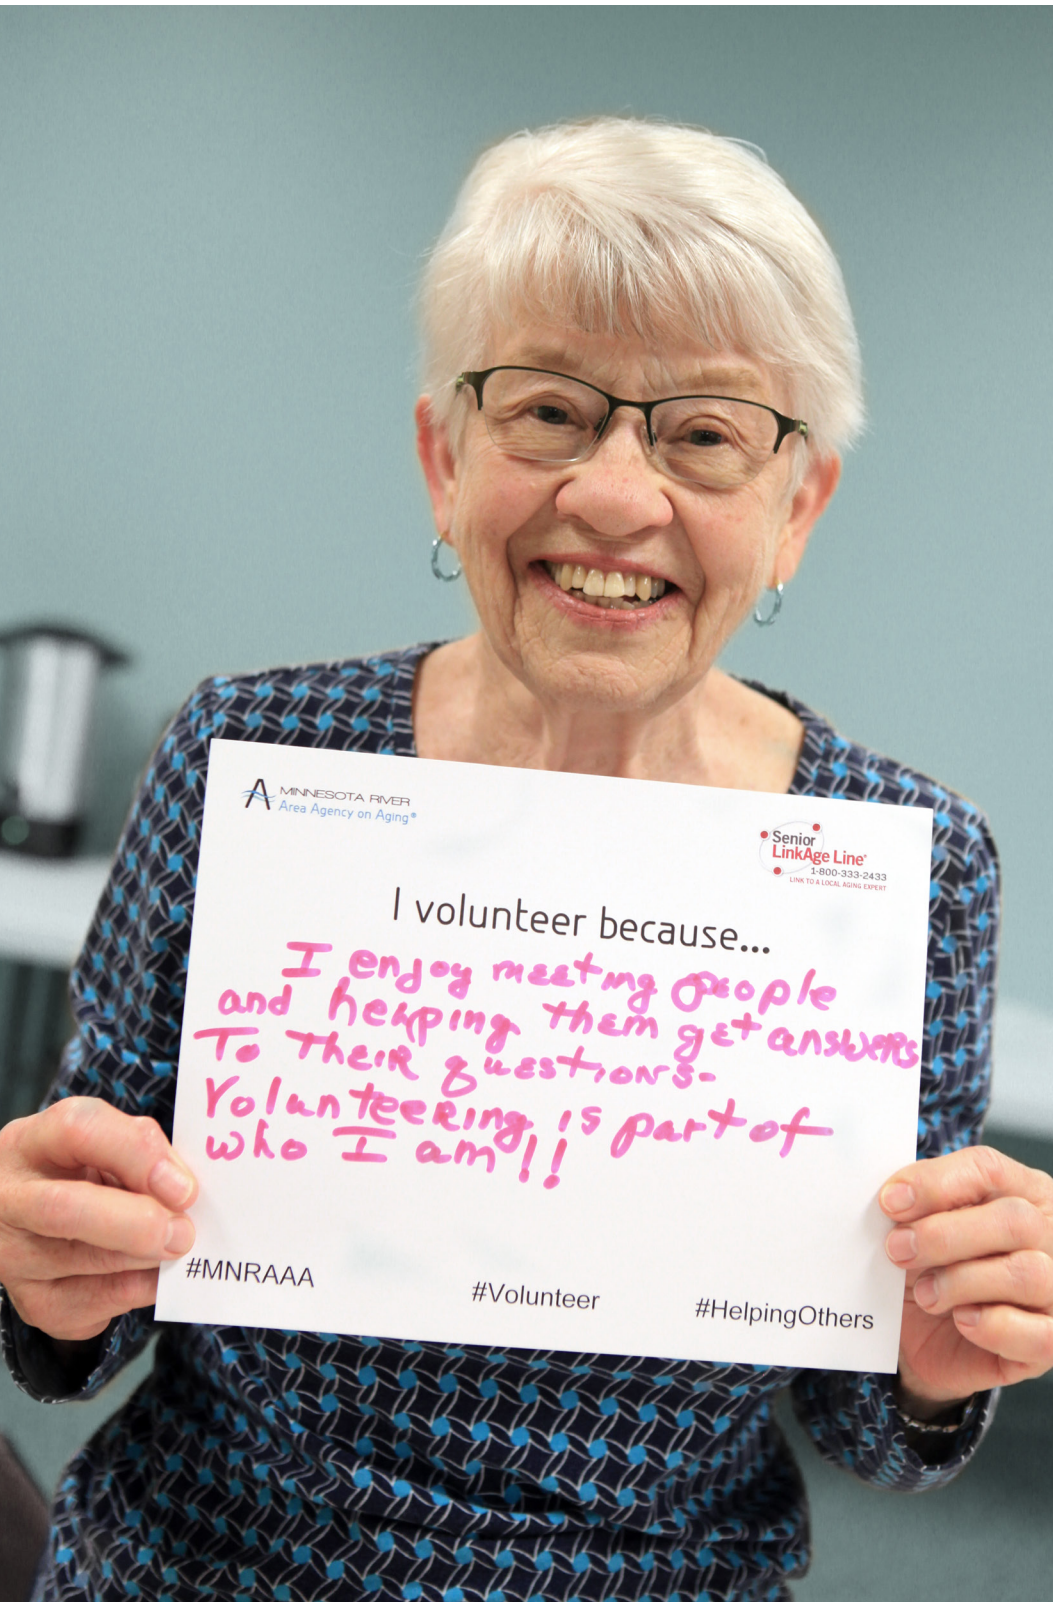 MINNESOTA RIVER
Area Agency on Aging®
Senior
LinkAge Line®
1-800-333-2433
LINK TO A LOCAL AGING EXPERT
I volunteer because...
I enjoy meeting people
and helping them get answers
To Their questions-
Volunteering is part of
who I am!!
#MNRAAA
#Volunteer
#HelpingOthers